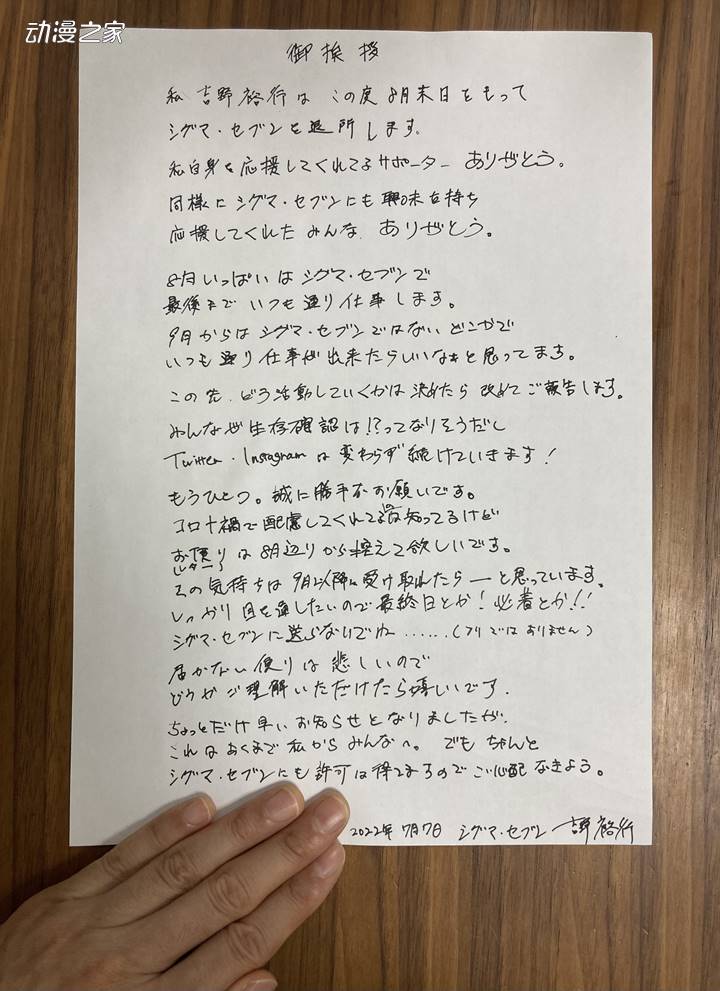 动漫之家
御挨拶
私 吉野裕行は この度 8月末日をもって
シグマ・セブンを退所します。
私自身を応援してくれてるサポーター ありがとう。
同様にシグマ・セブンにも興味を持ち
応援してくれた みんな、ありがとう。
8月いっぱいは シグマ・セブンで
最後まで いつも通り仕事します。
9月からは シグマ・セブンではない どこかで
いつも通り 仕事が出来たらいいなぁと思ってます。
この先、どう活動していくかは 決めたら 改めて ご報告します。
みんな 生存確認は!?ってなりそうだし
Twitter・Instagramは 変わらず 続けていきます!
もうひとつ。誠に勝手なお願いです。
コロナ禍で配慮してくれてるのは知ってるけど
お便り(レター) は 8月辺りから控えて欲しいです。
その気持ちは 9月以降に受け取れたらーと思っています。
しっかり 目を通したいので 最終日とか!必着とか!!
シグマ・セブンに送らないでね……(フリではありません)
届かない 便りは 悲しいので
どうかご理解いただけたら嬉しいです.
ちょっとだけ早い お知らせとなりましたが、
これは あくまで 私から みんなへ。でも ちゃんと
シグマ・セブンにも 許可は得てますので ご心配なきよう。
2022年 7月7日 シグマ・セブン 吉野裕行